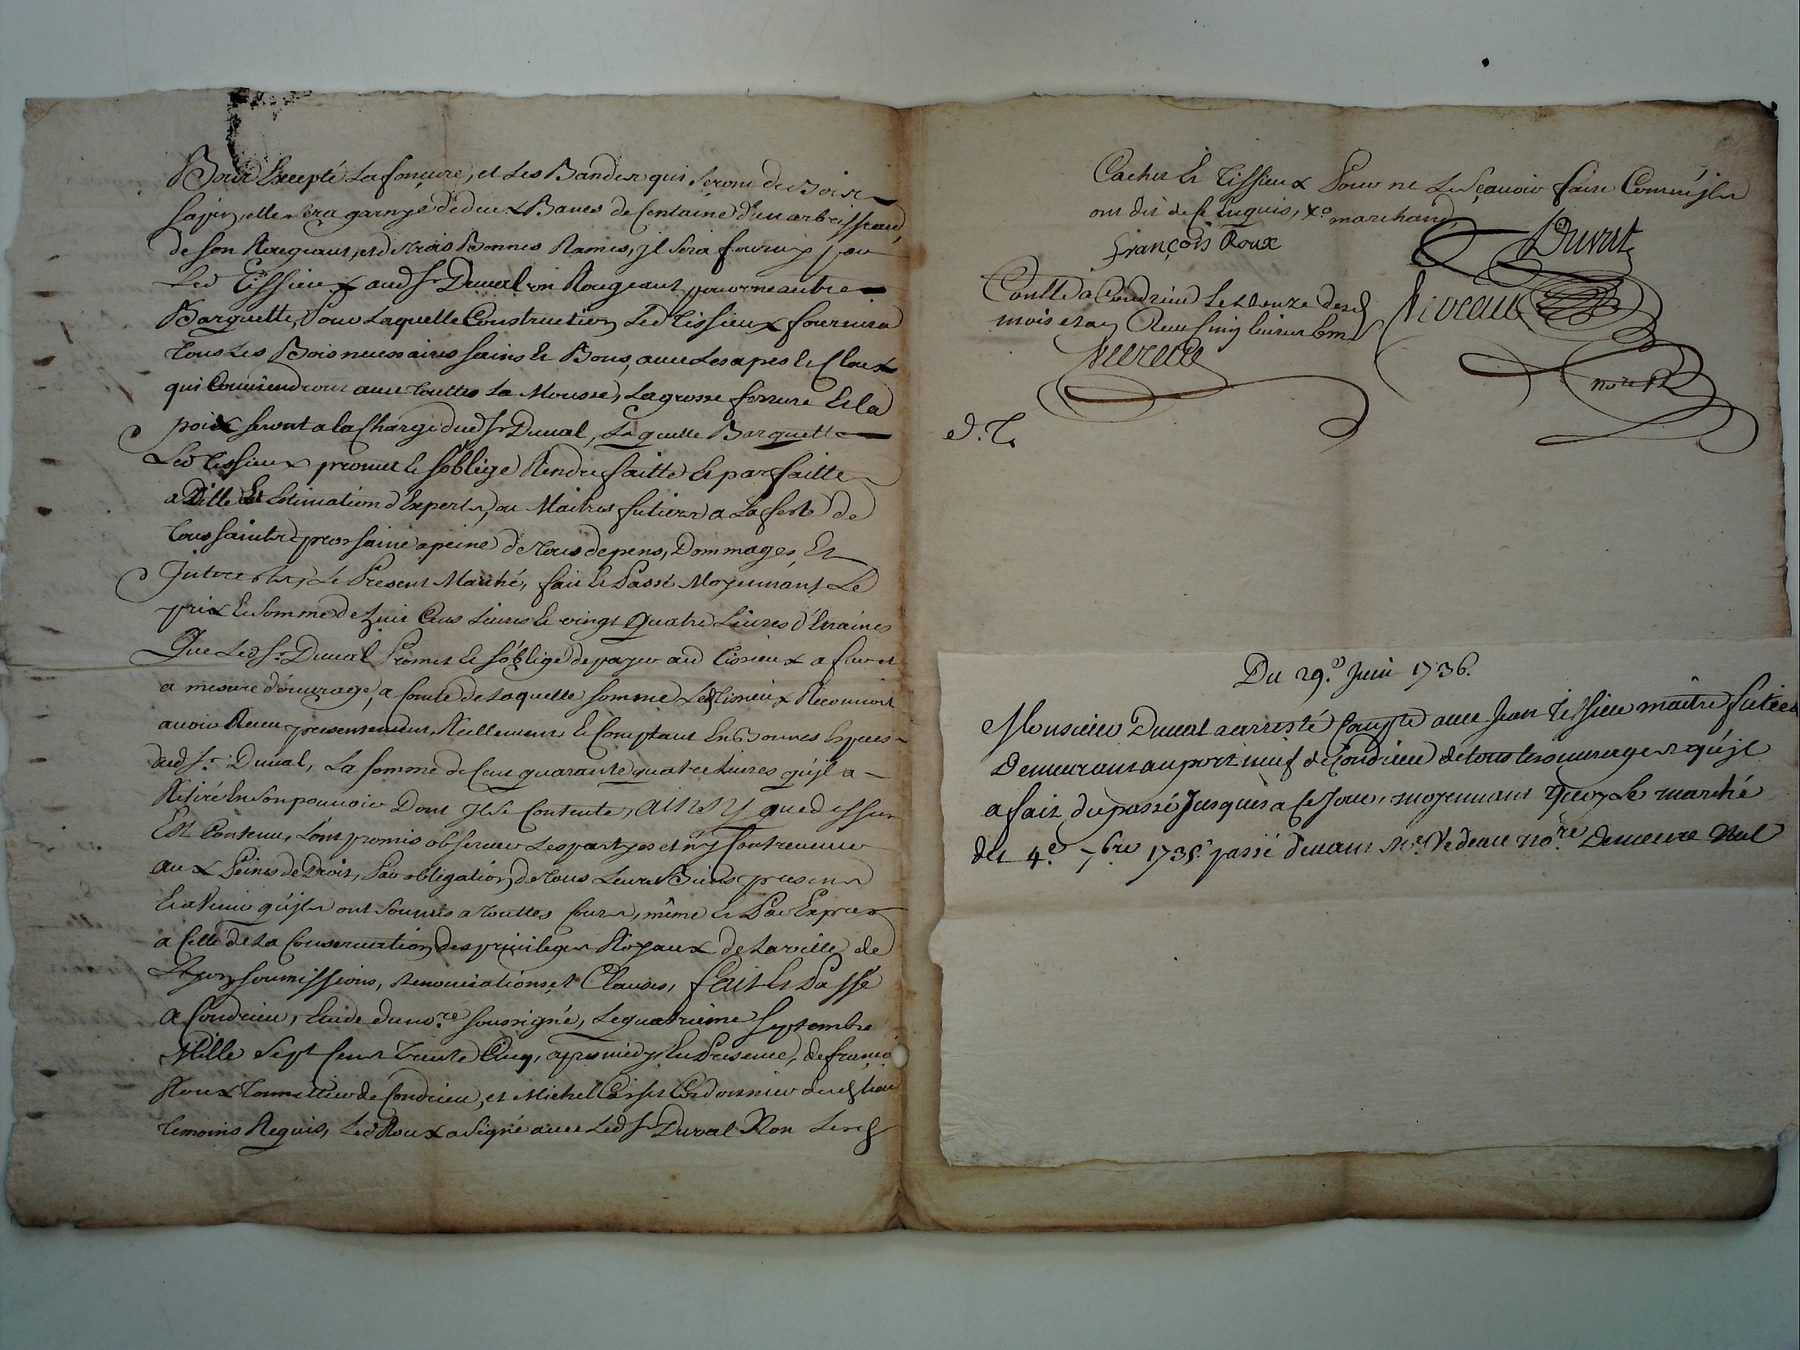 Bour Excepté La fonçure, et Les Bandes qui seront de Bois
sapin, elle sera garnye de deux Bancs de Centaine d'un arbaisseau
de son Rougeaut, et de trois Bonnes Rames, jl sera fourny par
Led Tissieux aud Sr Duval un Rougeaut pour une autre
Barquette, Pour Laquelle Construction Led Tissieux fournira
tous Les Bois necessaires sains & Bons, avec Les apes & Cloux
qui Conviendront avec touttes La Mousse, La grosse ferrure & la
poix seront a la Charge dud Sr Duval, Laquelle Barquette
Led Tissieux promet & s'oblige Rendre faitte & parfaitte
a Ditte & Estimation d'Experts, ou Maitres futiers a La feste de
toussaints prossaine a peine de tous depens, Dommages Et
Jnterests, Le Present Marché, fait & Passé Moyennant Le
prix & somme de huit Cens Livres & vingt Quatre Livres d'Etraines
Que Led Sr Duval Promet & s'oblige de payer aud Tissieux a fur et
a mesure d'ouvrage, a Comte de Laquelle somme Led Tissieux Reconnoit
avoir Receu presentement Reellement & Comptant En Bonnes Especes
dud Sr Duval, La somme de Cent quarante quatre Livres qu'jl a
Retiré En son pouvoir Dont Jl se Contente, AINSY que dessus
Est Contenu, L'ont promis observer Les partyes et n'y Contrevenir
aux Peines de Droit, Par obligation de tous Leurs Biens presens
& avenir qu'jls ont soumis a touttes Cours, même & Par Exprès
a Celle de La Conservation des privileges Royaux de La ville de
Lyon soumissions, Renonciations, et Clauses, fait & Passé
a Condrieu, Etude du no.re soussigné, Le quatrieme septembre
Mille sept Cent trente Cinq, apres midy En Presence, de françois
Roux tonnellier de Condrieu, et Michel Cachet Cordonnier dud Lieu
temoins Requis, Led Roux a signé avec Led Sr Duval Non Lesd
Cachet & Tissieux Pour ne Le sçavoir faire Comme jls
ont dit de ce Enquis, marchand
françois Roux
Duval
Conllé a Condrieu Le douze desd
mois et an Receu Cinq
Vedeau
nore Rl
e. T.
Du 29.e Juin 1736.
Monsieur Duval a arresté Compte avec Jean Tissieu maître futier
Demeurant au port neuf de Condrieu de tous les ouvrages qu'jl
a fait du passé Jusques a ce Jour, moyennant quoy Le marché
du 4.e 7bre 1735. passé devant Me Vedeau no.re Demeure Nul